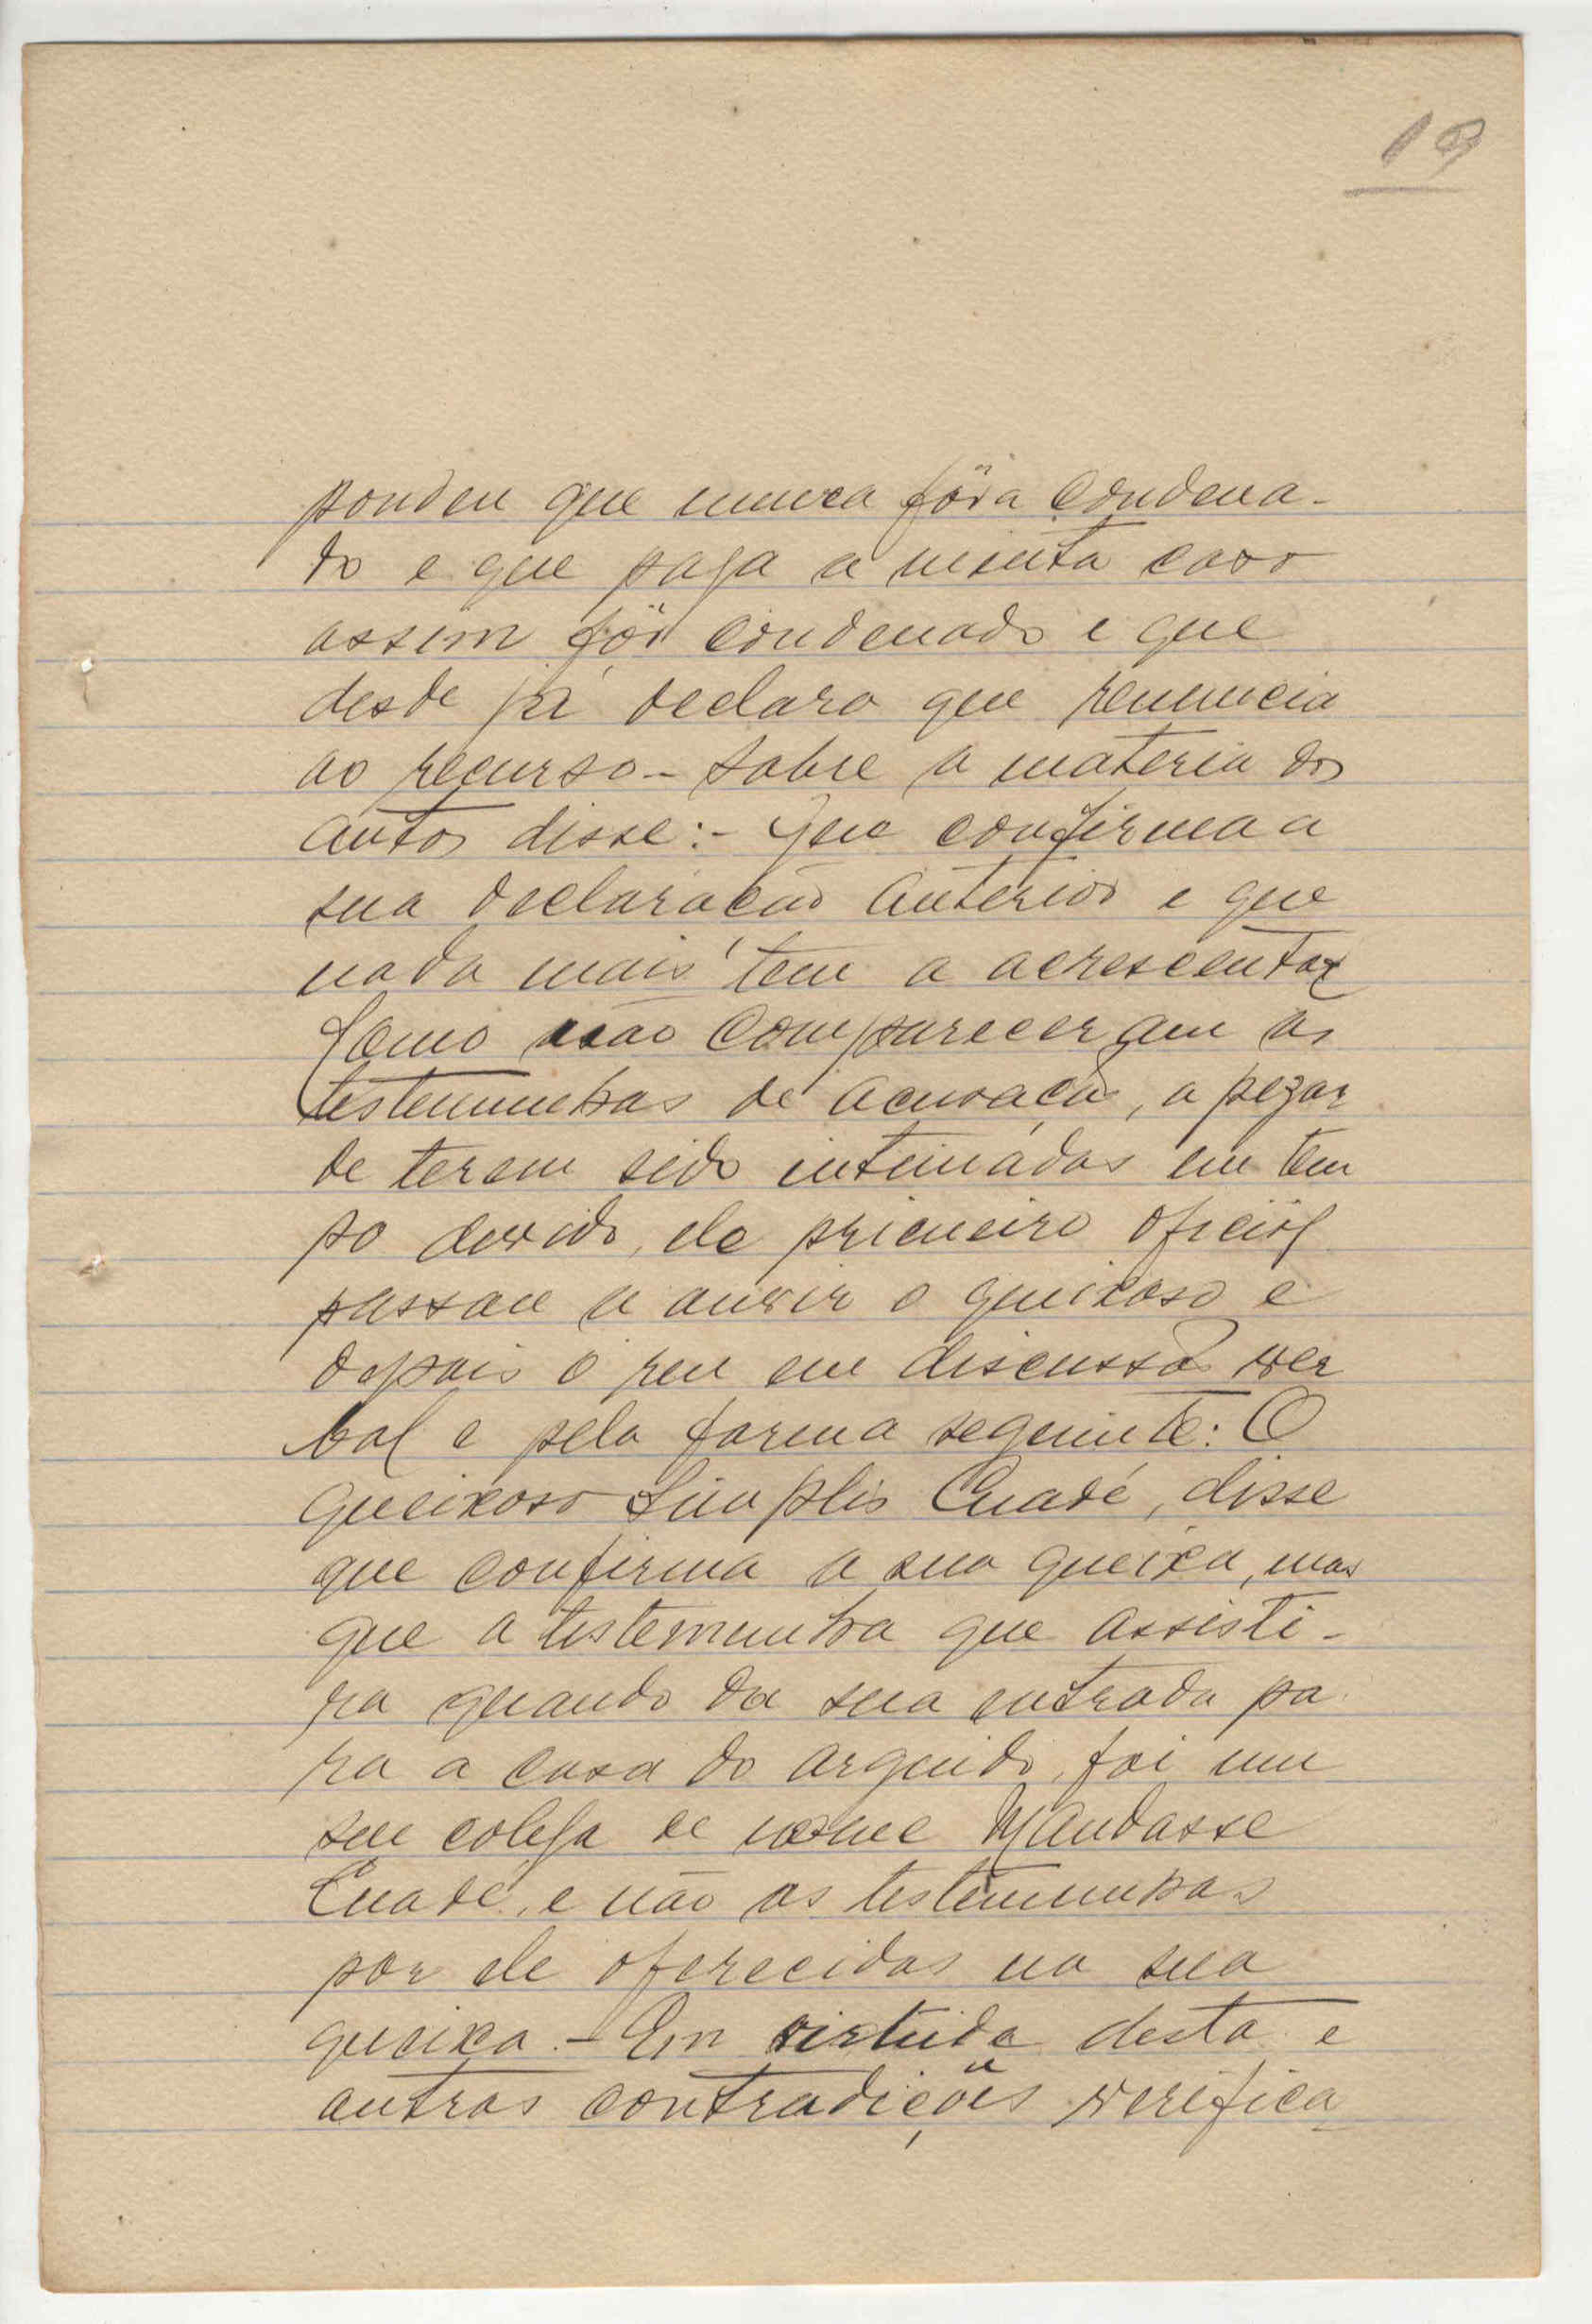 19
pondeu que nunca fôra condena-
do e que paga a multa caso
assim fôr condenado e que
desde já declara que renuncia
ao recurso - Sobre a materia dos
autos disse: - Que confirma a
sua declaração anterior e que
nada mais tem a acrescentar
Como não compareceram as
testemunhas de acusação, a pezar
de terem sido intimadas em tem
po devido, ele primeiro oficial
passou a ouvir o queixoso e
depois o reu em discussão ver
bal e pela forma seguinte: O
queixoso Simplis Cuadé, disse
que confirma a sua queixa, mas
que a testemunha que assisti-
ra quando da sua entrada pa
ra a casa do arguido, foi um
seu colega de nome Mandasse
Cuadé, e não as testemunhas
por ele oferecidas na sua
queixa. - Em virtude desta e
outras contradições verifica